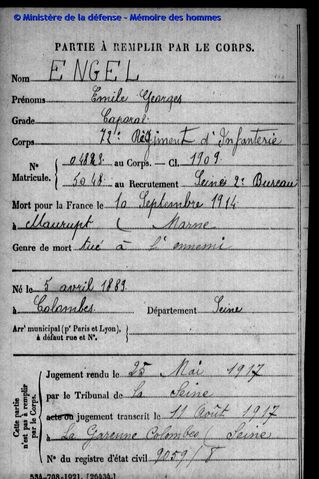 © Ministère de la défense - Mémoire des hommes
PARTIE À REMPLIR PAR LE CORPS.
Nom ENGEL
Prénoms Emile Georges
Grade Caporal
Corps 72e Régiment d'Infanterie
N° 04823 au Corps. — Cl. 1909
Matricule. 5048 au Recrutement Seine 2e Bureau
Mort pour la France le 10 Septembre 1914
à Maurupt ( Marne
Genre de mort tué à l'ennemi
Né le 5 avril 1889
à Colombes Département Seine
Arrt municipal (pr Paris et Lyon),
à défaut rue et N°.
Cette partie
n'est pas à remplir
par le Corps.
Jugement rendu le 25 Mai 1917
par le Tribunal de la Seine
acte ou jugement transcrit le 11 Août 1917
à La Garenne Colombes (Seine
N° du registre d'état civil 9059/8